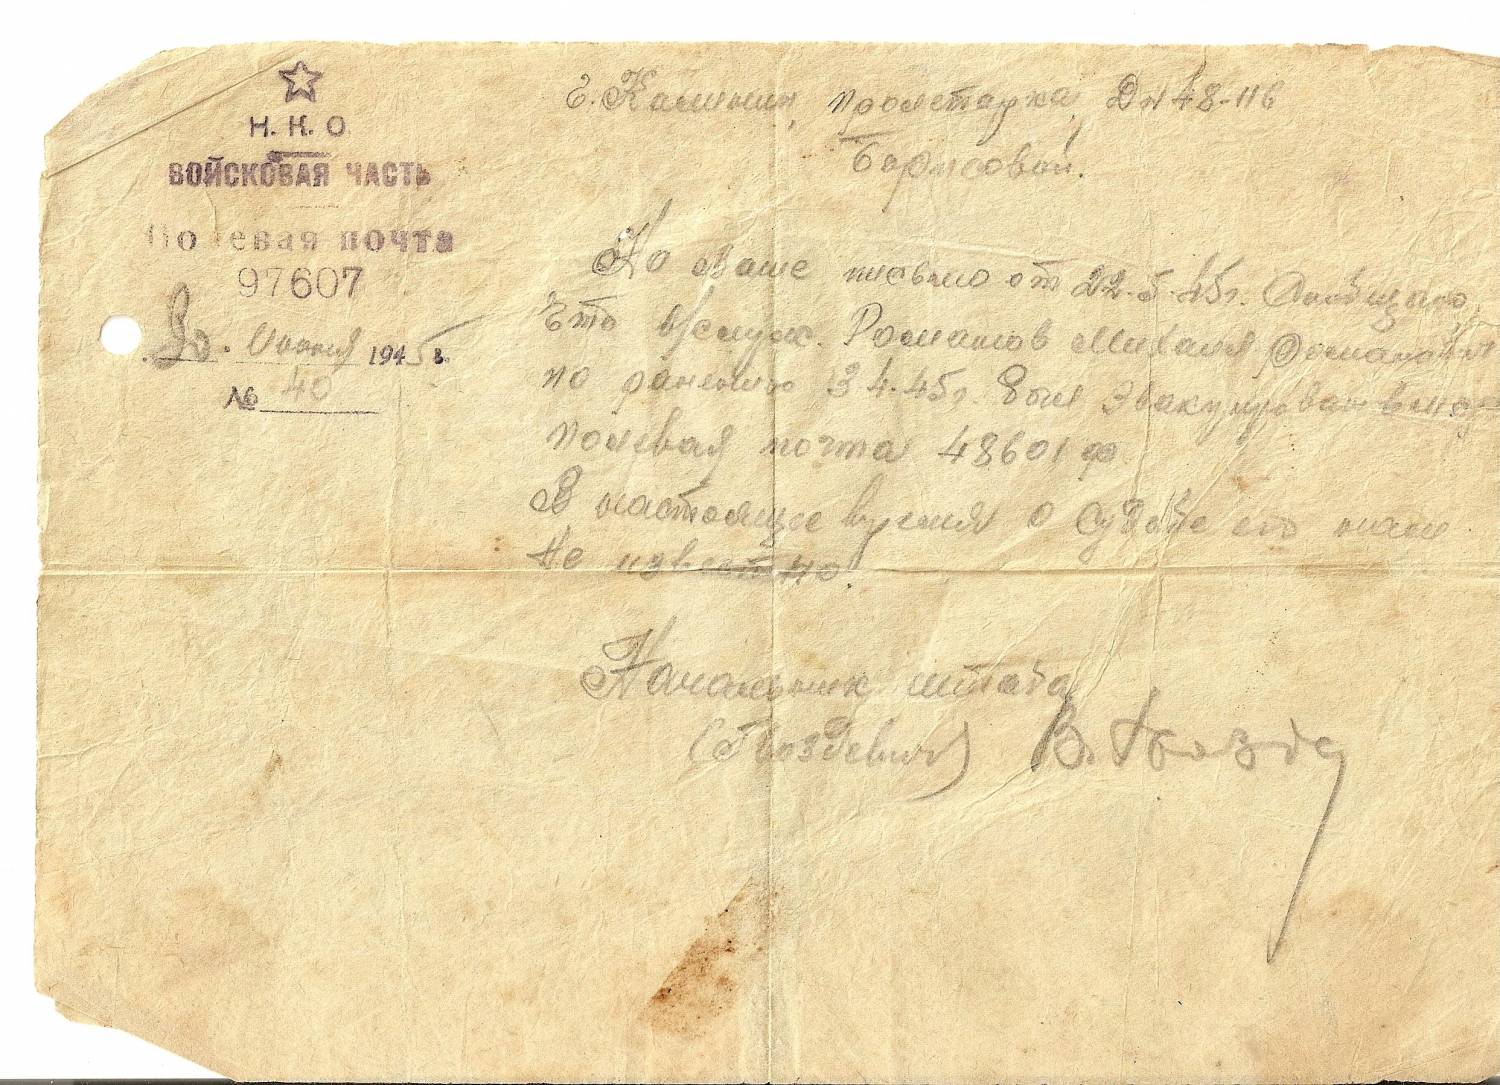 Н. К. О
ВОЙСКОВАЯ ЧАСТЬ
Полевая почта
97607
30. Июня 1945 г.
№ 40
г. Калинин, пролетарка, Д № 48-116
Борисовой.
На Ваше письмо от 22.5.45г. Сообщаю,
Что в/служ. Романов Михаил Романович
по ранению 3 4.45г. был эвакуирован в
полевая почта 48601 ф
В настоящее время о судьбе его нам
Не известно.
Начальник штаба
(Гвоздевич) В. Гвозд